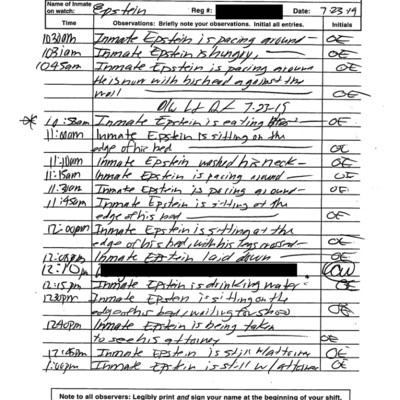 Name of Inmate on watch: Epstein Reg #: Date: 7-23-19
Time Observations: Briefly note your observations. Initial all entries. Initials
10:30am Inmate Epstein is pacing around OE
10:31am Inmate Epstein is hungry. OE
10:45am Inmate Epstein is pacing around
He is now with his head against the
wall OE
7-23-19
* 10:58am Inmate Epstein is eating OE
11:00am Inmate Epstein is sitting on the
edge of his bed OE
11:10am Inmate Epstein washed his neck OE
11:15am Inmate Epstein is pacing around OE
11:30am Inmate Epstein is pacing around OE
11:45am Inmate Epstein is sitting at the
edge of his bed OE
12:00pm Inmate Epstein is sitting at the
edge of his bed, with his legs crossed OE
12:05pm Inmate Epstein laid down OE
12:10pm
12:15pm Inmate Epstein is drinking water OE
12:30pm Inmate Epstein is sitting on the
edge of his bed, waiting for OE
12:40pm Inmate Epstein is being taken
to see his attorney OE
12:45pm Inmate Epstein is still w/ attorney OE
1:00pm Inmate Epstein is still w/ attorney OE
Note to all observers: Legibly print and sign your name at the beginning of your shift.